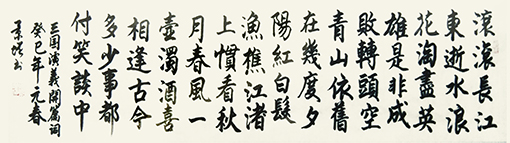 滾滾長江
東逝水浪
花淘盡英
雄是非成
敗轉頭空
青山依舊
在幾度夕
陽紅白髮
漁樵江渚
上慣看秋
月春風一
壺濁酒喜
相逢古今
多少事都
付笑談中
三國演義開篇詞
癸巳年元春
景 書